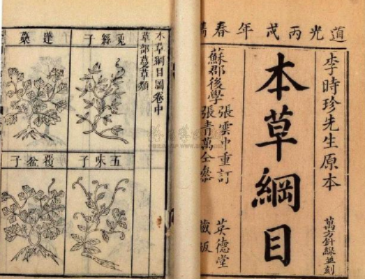 道光丙戌年春鐫
李時珍先生原本
本草綱目
萬方針線並刻
蘇郡後學
張雲中重訂
張青萬仝參
英德堂
藏板
本草綱目圖卷中
草部蔓草類
菟絲子
蓬蘽
五味子
覆盆子